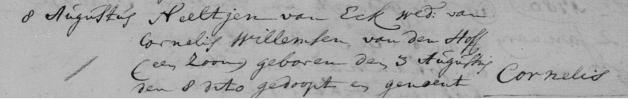 8 Augustus Neeltjen van Eck wed: van
Cornelis Willemsen van den Hoff
(een Zoon) geboren den 3 Augustus
den 8 dito gedoopt es genoent Cornelis